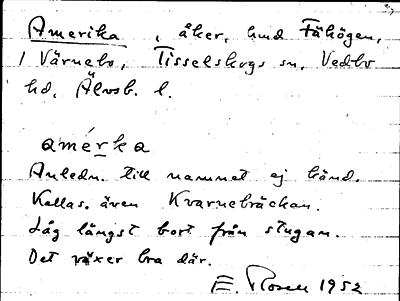 Amerika, åker, hmd Fåhögen,
1 Värnebo, Tisselskogs sn, Vedbo
hd, Älvsb. l.
amérka
Anledn. till namnet ej känd.
Kallas även Kvarnebräckan.
Låg längst bort från stugan.
Det växer bra där.
E. Rosell 1952